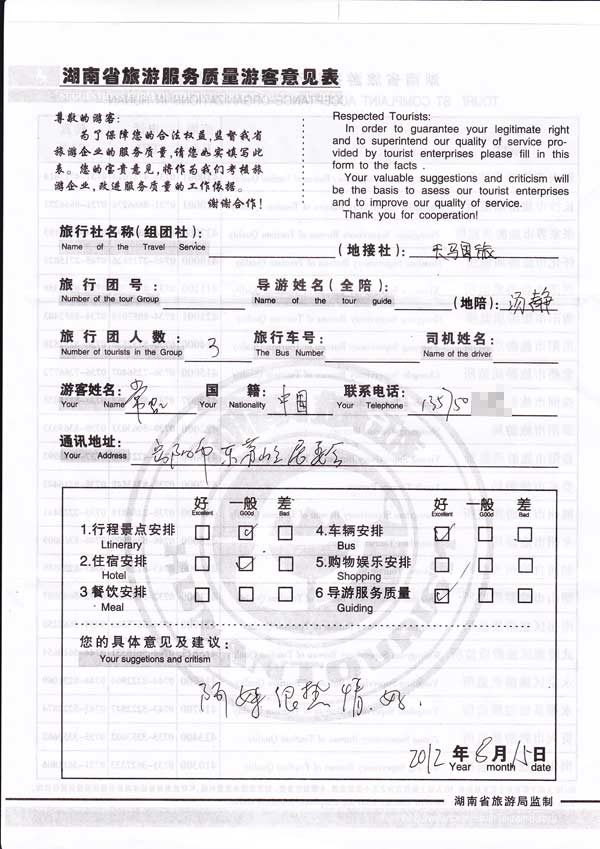 湖南省旅游服务质量游客意见表
尊敬的游客:
为了保障您的合法权益,监督我省
旅游企业的服务质量,请您如实填写此
表。您的宝贵意见,将作为我们考核旅
游企业,改进服务质量的工作依据。
谢谢合作!
Respected Tourists:
In order to guarantee your legitimate right
and to superintend our quality of service pro-
vided by tourist enterprises please fill in this
form to the facts .
Your valuable suggestions and criticism will
be the basis to asess our tourist enterprises
and to improve our quality of service.
Thank you for cooperation!
旅行社名称(组团社): (地接社): 天马国旅
Name of the Travel Service
旅行团号 导游姓名(全陪): (地陪): 汤静
Number of the tour Group Name of the tour guide
旅行团人数: 3 旅行车号: 司机姓名:
Number of tourists in the Group The Bus Number Name of the driver
游客姓名: 国籍: 中国 联系电话: 135750
Your Name Your Nationality Your Telephone
通讯地址: 岳阳市
Your Address
好 一般 差 好 一般 差
Excellent Good Bad Excellent Good Bad
1.行程景点安排 4.车辆安排
Ltinerary Bus
2.住宿安排 5.购物娱乐安排
Hotel Shopping
3 餐饮安排 6 导游服务质量
Meal Guiding
您的具体意见及建议:
Your suggetions and critism
阿妹很热情.好.
2012 年 8 月 15 日
Year month date
湖南省旅游局监制